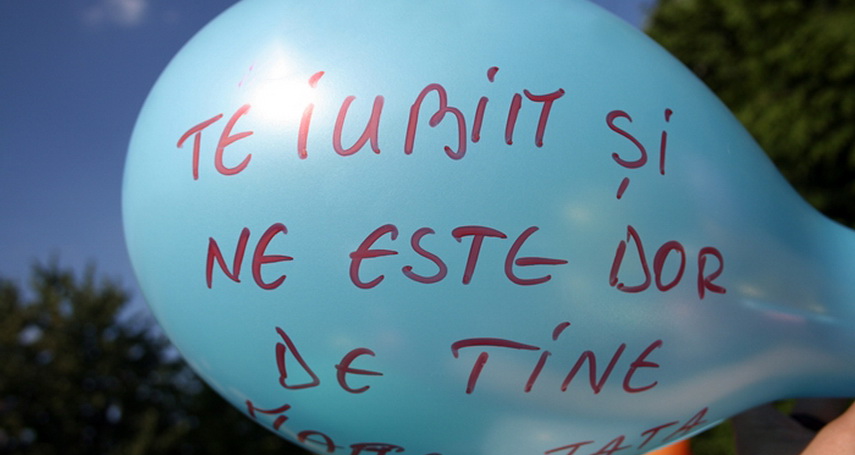 TE IUBIM ȘI
NE ESTE DOR
DE TINE
TATA